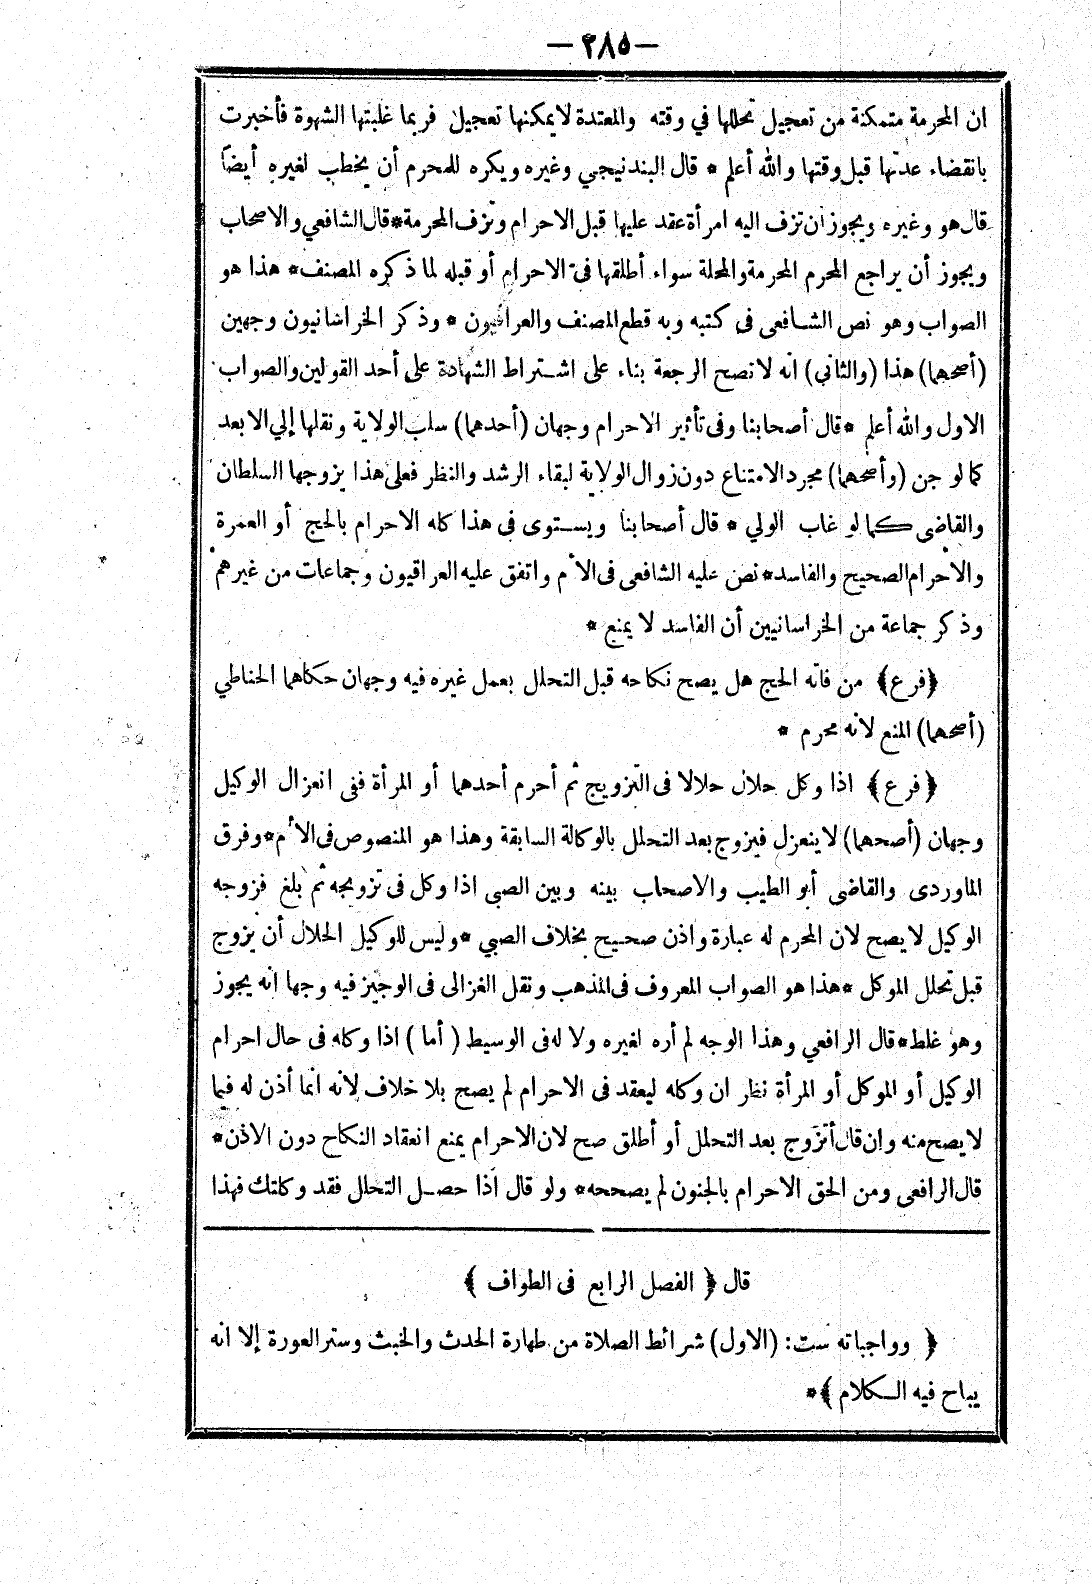 — ٢٨٥ —
ان المحرمة متمكنة من تعجيل تحللها في وقته والمعتدة لايمكنها تعجيل فربما غلبتها الشهوة فأخبرت
بانقضاء عدتها قبل وقتها والله أعلم * قال البندنيجي وغيره ويكره للمحرم أن يخطب لغيره أيضاً
قال هو وغيره ويجوز ان تزف اليه امرأة عقد عليها قبل الاحرام وتزف المحرمة*قال الشافعي والاصحاب
ويجوز أن يراجع المحرم المحرمة والمحلة سواء أطلقها فى الاحرام أو قبله لما ذكره المصنف* هذا هو
الصواب وهو نص الشافعى فى كتبه وبه قطع المصنف والعراقيون * وذكر الخراسانيون وجهين
(أصحهما) هذا (والثانى) انه لا تصح الرجعة بناء على اشتراط الشهادة على أحد القولين والصواب
الاول والله أعلم *قال أصحابنا وفى تأثير الاحرام وجهان (أحدهما) سلب الولاية ونقلها إلي الابعد
كما لو جن (وأصحهما) مجرد الامتناع دون زوال الولاية لبقاء الرشد والنظر فعلى هذا يزوجها السلطان
والقاضى كما لو غاب الولي * قال أصحابنا ويستوى فى هذا كله الاحرام بالحج أو العمرة
والاحرام الصحيح والفاسد*نص عليه الشافعى فى الأم واتفق عليه العراقيون وجماعات من غيرهم
وذكر جماعة من الخراسانيين أن الفاسد لا يمنع *
﴿فرع﴾ من فاته الحج هل يصح نكاحه قبل التحلل بعمل غيره فيه وجهان حكاهما الحناطي
(أصحهما) المنع لانه محرم *
﴿فرع﴾ اذا وكل حلال حلالا فى التزويج ثم أحرم أحدهما أو المرأة ففى انعزال الوكيل
وجهان (أصحهما) لا ينعزل فيزوج بعد التحلل بالوكالة السابقة وهذا هو المنصوص فى الأم*وفرق
الماوردى والقاضى أبو الطيب والاصحاب بينه وبين الصبى اذا وكل فى تزويجه ثم بلغ فزوجه
الوكيل لا يصح لان المحرم له عبارة واذن صحيح بخلاف الصبي *وليس للوكيل الحلال أن يزوج
قبل تحلل الموكل *هذا هو الصواب المعروف فى المذهب ونقل الغزالى فى الوجيز فيه وجها انه يجوز
وهو غلط*قال الرافعي وهذا الوجه لم أره لغيره ولا له فى الوسيط (أما) اذا وكله فى حال احرام
الوكيل أو الموكل أو المرأة نظر ان وكله ليعقد فى الاحرام لم يصح بلا خلاف لانه انما أذن له فيما
لا يصح منه وان قال أتزوج بعد التحلل أو أطلق صح لان الاحرام يمنع انعقاد النكاح دون الاذن*
قال الرافعى ومن الحق الاحرام بالجنون لم يصححه* ولو قال اذا حصل التحلل فقد وكلتك فهذا
قال ﴿ الفصل الرابع فى الطواف ﴾
﴿ وواجباته ست: (الاول) شرائط الصلاة من طهارة الحدث والخبث وستر العورة إلا انه
يباح فيه الكلام ﴾*